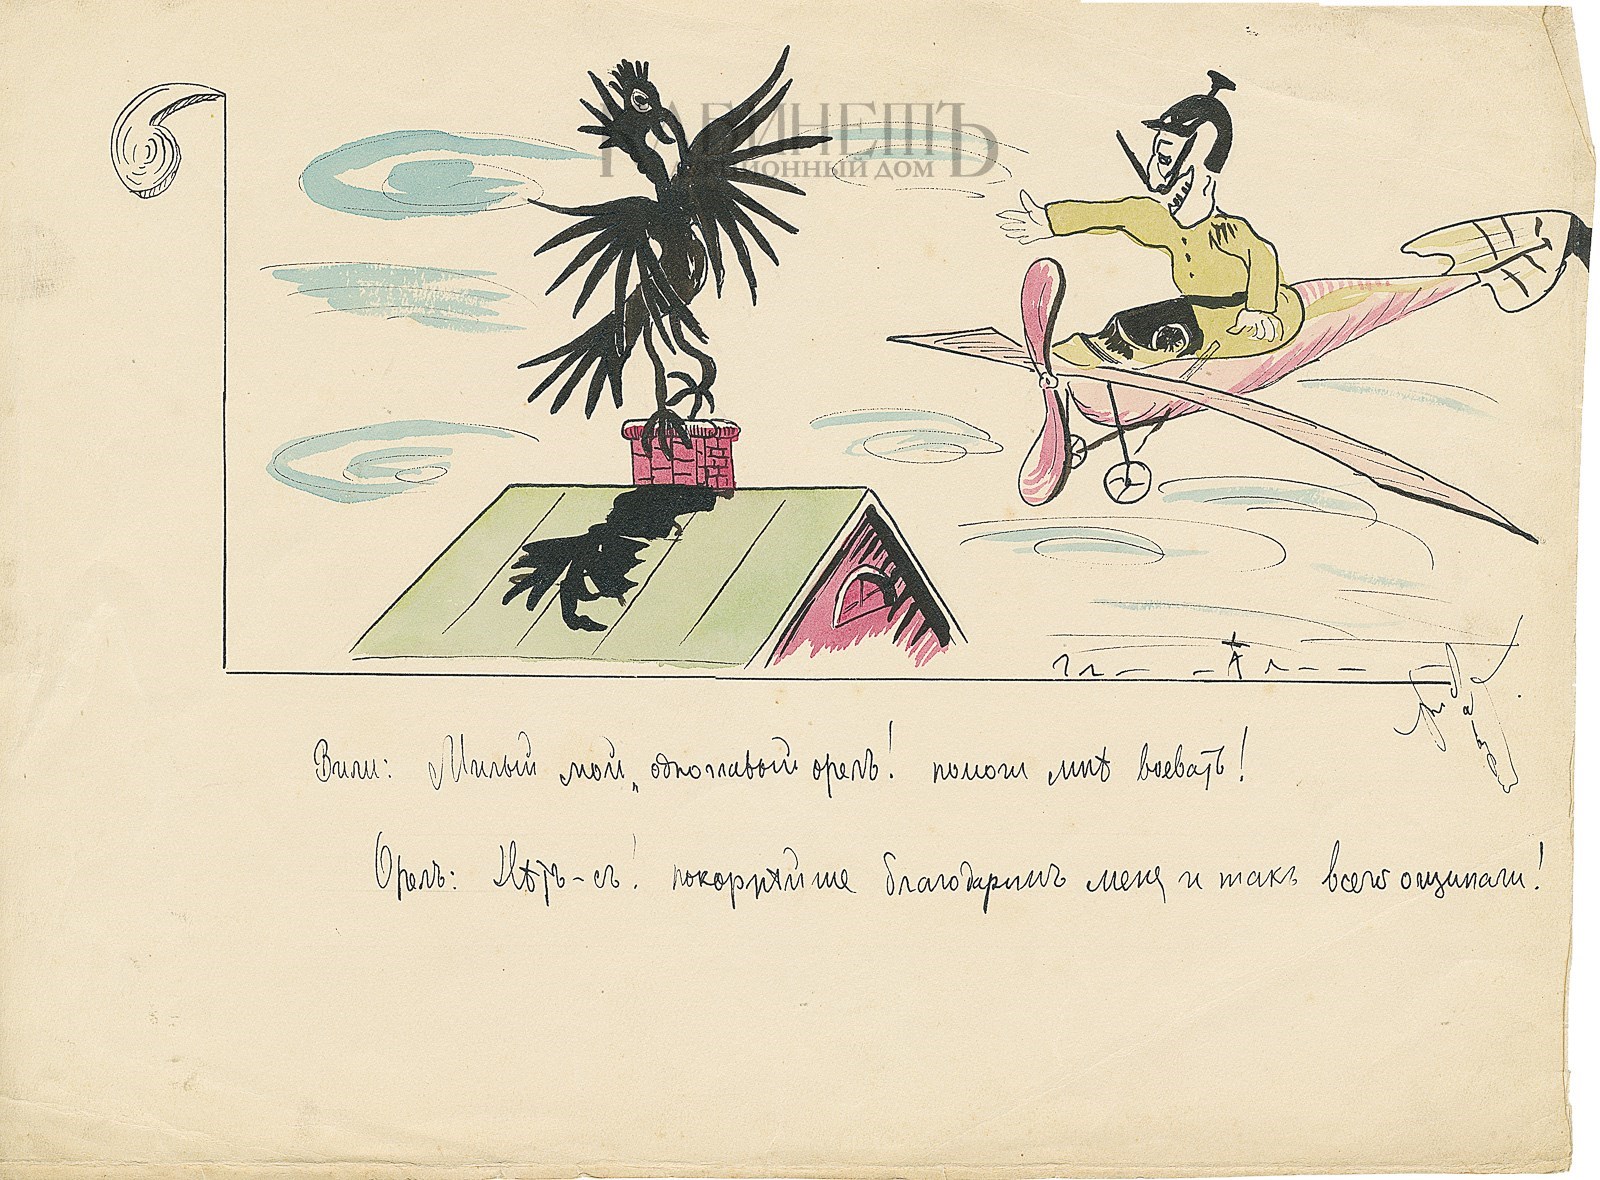 КАБИНЕТЪ
АУКЦИОННЫЙ ДОМ
Вили: Милый мой, одноглавый орелъ! помоги мнѣ воевать!
Орелъ: Нѣтъ-съ! покорнѣйше благодаримъ меня и такъ всего ощипали!